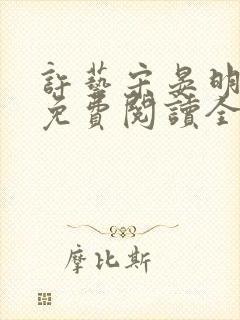 許藝宋晏明
免費閱讀全
摩比斯